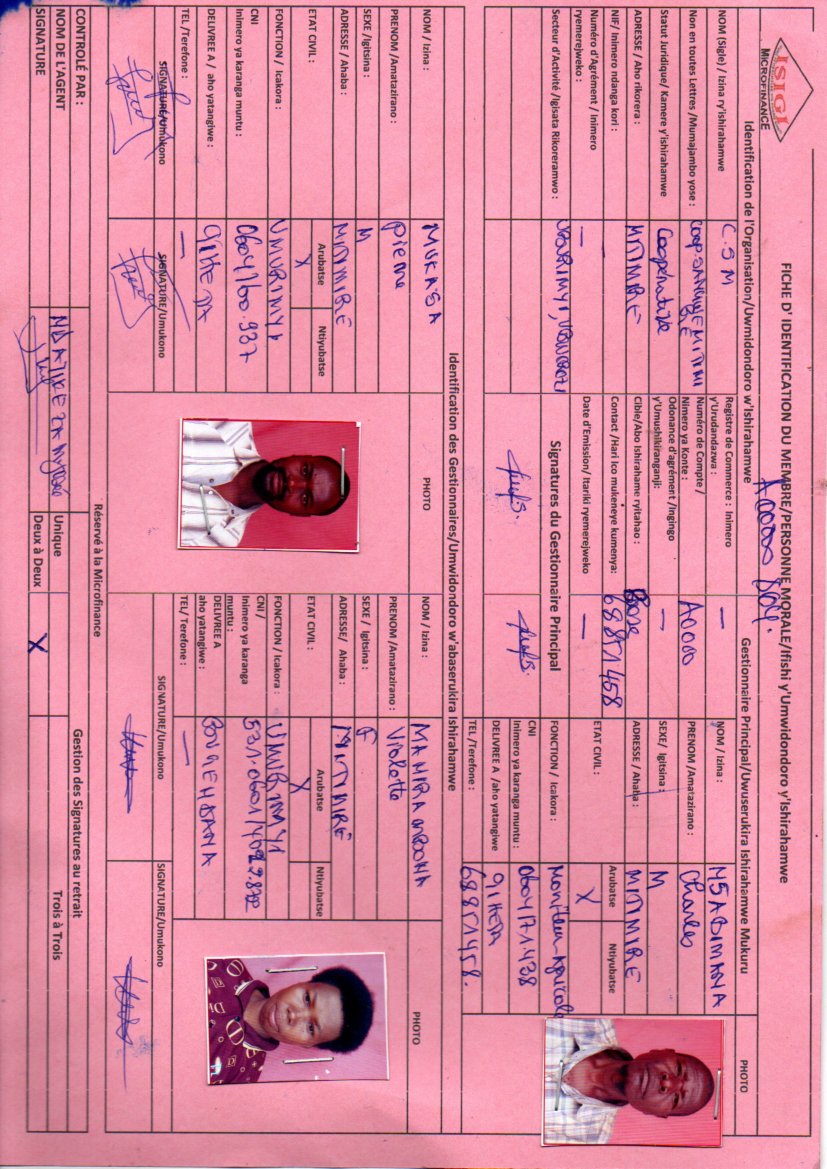 ISIGI
MICROFINANCE
FICHE D' IDENTIFICATION DU MEMBRE/PERSONNE MORALE/Ifishi y'Umwidondoro y'Ishirahamwe
Identification de l'Organisation/Uwmidondoro w'Ishirahamwe
Gestionnaire Principal/Uwuserukira Ishirahamwe Mukuru
NOM (Sigle)/ Izina ry'ishirahamwe
C.S.M
Registre de Commerce : Inimero y'Urudandazwa :
—
NOM / Izina :
NSABIMANA
PHOTO
Non en toutes Lettres /Mumajambo yose :
Numéro de Compte / Nimero ya Konte :
A0000
PRENOM /Amatazirano :
Charles
Statut Juridique/ Kamere y'ishirahamwe
Coopérative
Odonance d'agrément /Ingingo y'Umushikiranganji:
—
SEXE/ Igitsina :
M
ADRESSE / Aho rikorera :
MITIMIRE
Cible/Abo Ishirahame ryitahao :
Base
ADRESSE / Ahaba :
MITIMIRE
NIF/ Inimero ndanga kori :
—
Contact /Hari ico mukeneye kumenya:
68851458
ETAT CIVIL :
Arubatse
Ntiyubatse
X
Numéro d'Agrément / Inimero ryemerejweko :
—
Date d'Emission/ Itariki ryemerejweko
—
FONCTION / Icakora :
Moniteur Agricole
Secteur d'Activité /Igisata Rikoreramwo :
Signatures du Gestionnaire Principal
CNI
Inimero ya karanga muntu :
DELIVREE A /aho yatangiwe
GIHETA
TEL /Terefone :
68851458.
Identification des Gestionnaires/Umwidondoro w'abaserukira Ishirahamwe
NOM / Izina :
MUKASA
PHOTO
NOM / Izina :
PHOTO
PRENOM /Amatazirano :
Pierre
PRENOM /Amatazirano :
Violette
SEXE /Igitsina :
M
SEXE / Igitsina :
F
ADRESSE / Ahaba :
MITIMIRE
ADRESSE/ Ahaba :
MITIMIRE
ETAT CIVIL :
Arubatse
Ntiyubatse
X
ETAT CIVIL :
Arubatse
Ntiyubatse
X
FONCTION / Icakora :
UMURIMYI
FONCTION / Icakora :
UMURIMYI
CNI
Inimero ya karanga muntu :
CNI /
Inimero ya karanga muntu :
DELIVREE A / aho yatangiwe :
GIHETA
DELIVREE A aho yatangiwe :
BUGENDANA
TEL /Terefone :
—
TEL/ Terefone :
—
SIGNATURE/Umukono
SIGNATURE/Umukono
SIGNATURE/Umukono
SIGNATURE/Umukono
Réservé à la Microfinance
CONTROLÉ PAR :
Gestion des Signatures au retrait
NOM DE L'AGENT
Unique
Trois à Trois
SIGNATURE
Deux à Deux
X